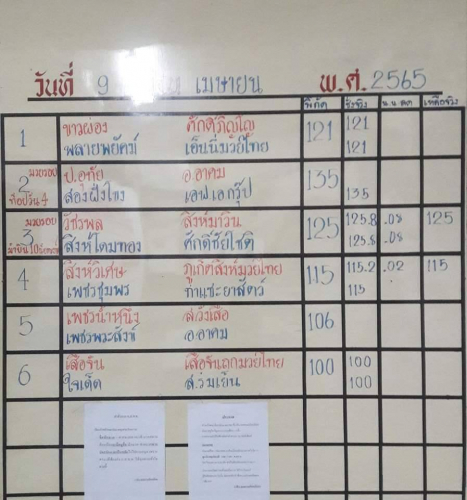 วันที่ 9 เมษายน พ.ศ. 2565
พิกัด ชั่งจริง น.น.ลด เหลือจริง
1 ขาวผ่อง ศักดิ์ภิญโญ 121 121
พลายพยัคฆ์ เอ็นนี่มวยไทย 121
2 มวยรอบ ป.อุทัย อ.อาคม 135
ท็อปวัน 4 สองฝั่งโขง เอฟเอกรุ๊ป 135
3 มวยรอบ วัชรพล สิงห์มาวิน 125 125.8 .08 125
สิงห์โดมทอง ศักดิ์ชัยโชติ 125.8 .08
4 สิงห์วิเศษ ภูเก็ตสิงห์มวยไทย 115 115.2 .02 115
เพชรชุมพร กำแซะยาสัตว์ 115
5 เพชรน้ำหนึ่ง ส.วังเสือ 106
เพชรพระสังข์ อ.อาคม
6 เสือรัน เสือรันถกมวยไทย 100 100
ใจเด็ด ส.วมเย็น 100